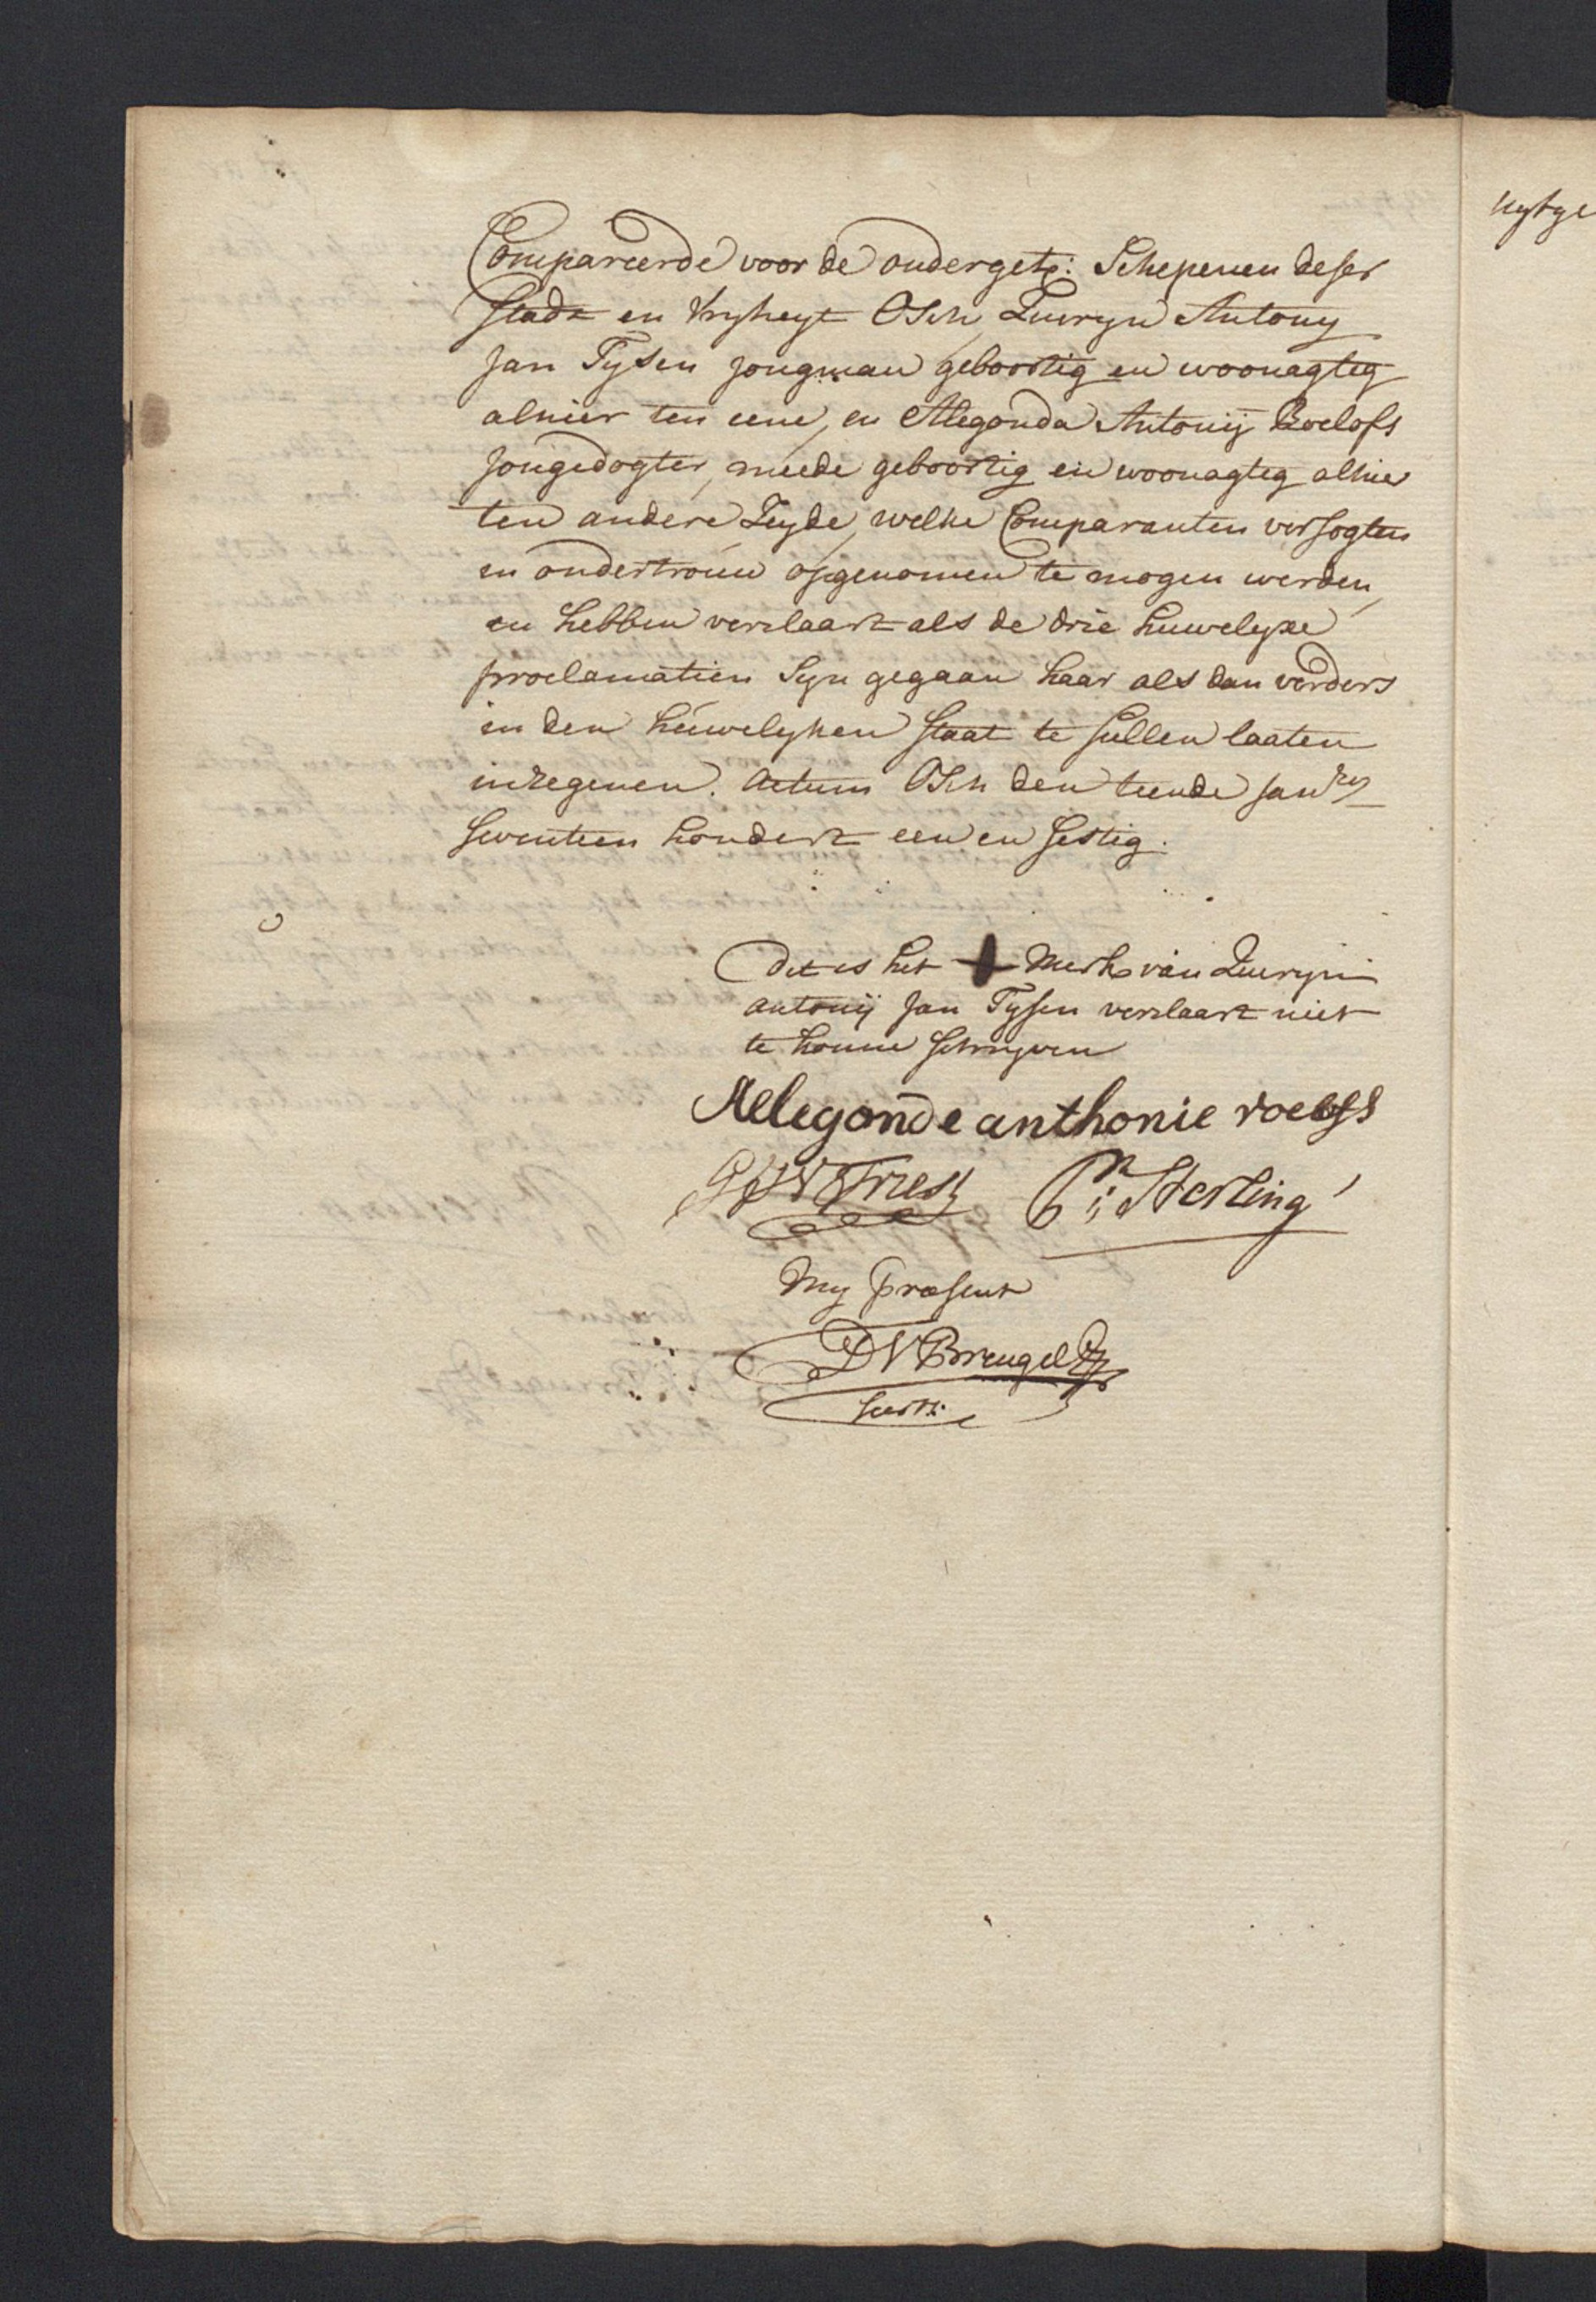 Compareerde voor de onderget: Schepenen deser
Stadt en Vryheyt Osch Quiryn Antony
Jan Tysen jongman geboortig en woonagteg
alhier ten eene, en Alegonda Antonij Roelofs
jongedogter, meede geboortig en woonagteg alhier
ten andere Zeyde, welke Comparanten versogten
in ondertrouw opgenomen te mogen werden,
en hebben verclaart als de drie huwelyxe
proclamatien Syn gegaan haar als dan verders
in den huwelyken staat te sullen laaten
inzegenen. Actum Osch den tiende jan.ry
seventien hondert een en sestig.
dit is het merk van Quiryn
antonij Jan Tysen verclaart niet
te konne schryven
Aelegonde anthonie roelofs
Sterling
My præsent
D V Breugel
Secrts.
uytge